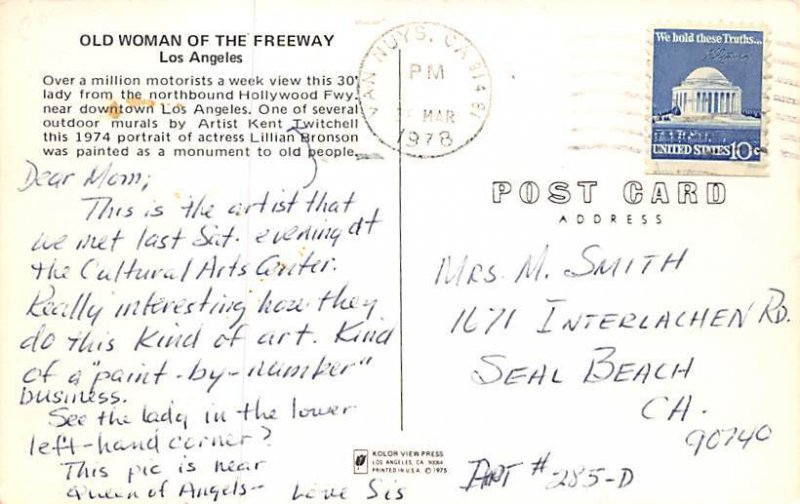 OLD WOMAN OF THE FREEWAY
Los Angeles
Over a million motorists a week view this 30'
lady from the northbound Hollywood Fwy.
near downtown Los Angeles. One of several
outdoor murals by Artist Kent Twitchell
this 1974 portrait of actress Lillian Bronson
was painted as a monument to old people.
Dear Mom;
This is the artist that
we met last Sat. evening at
the Cultural Arts Center.
Really interesting how they
do this kind of art. Kind
of a "paint-by-number"
business.
See the lady in the lower
left-hand corner?
This pic is near
Queen of Angels-- Love Sis
VAN NUYS, CA 914
PM
MAR
1978
We hold these Truths...
UNITED STATES 10c
POST CARD
ADDRESS
MRS M. SMITH
1671 INTERLACHEN RD.
SEAL BEACH
CA.
90740
APT # 285-D
KOLOR VIEW PRESS
LOS ANGELES, CA. 90064
PRINTED IN U.S.A. © 1975